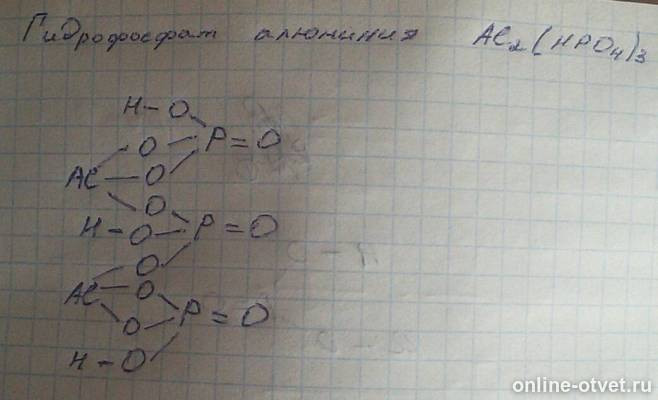 Гидрофосфат алюминия Al₂(HPO₄)₃
H-O
O P=O
Al O
O
H-O P=O
O
Al O
O P=O
H-O
online-otvet.ru